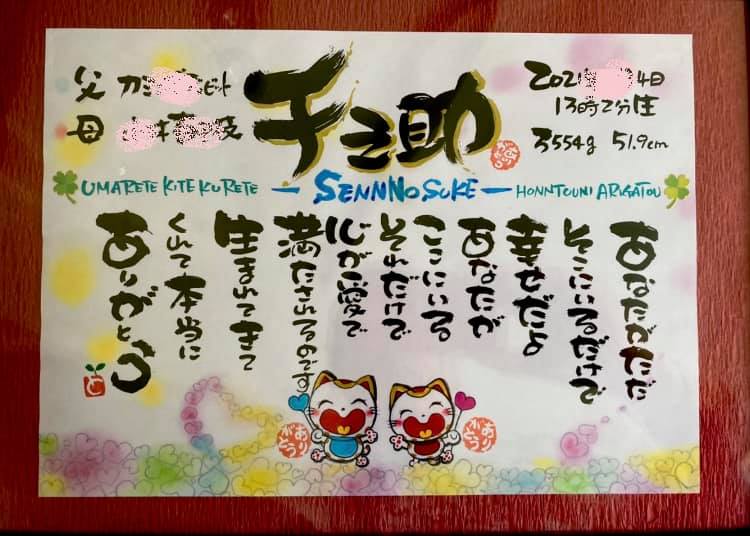 父
母
千之助
2021 4日
13時2分生
3554g 51.9cm
UMARETE KITE KURETE — SENNNOSUKE — HONNTOUNI ARIGATOU
あなたがただ
そこにいるだけで
幸せだよ
あなたが
ここにいる
それだけで
心が愛で
満たされるのです
生まれてきて
くれて本当に
ありがとう
ありがとう
ありがとう